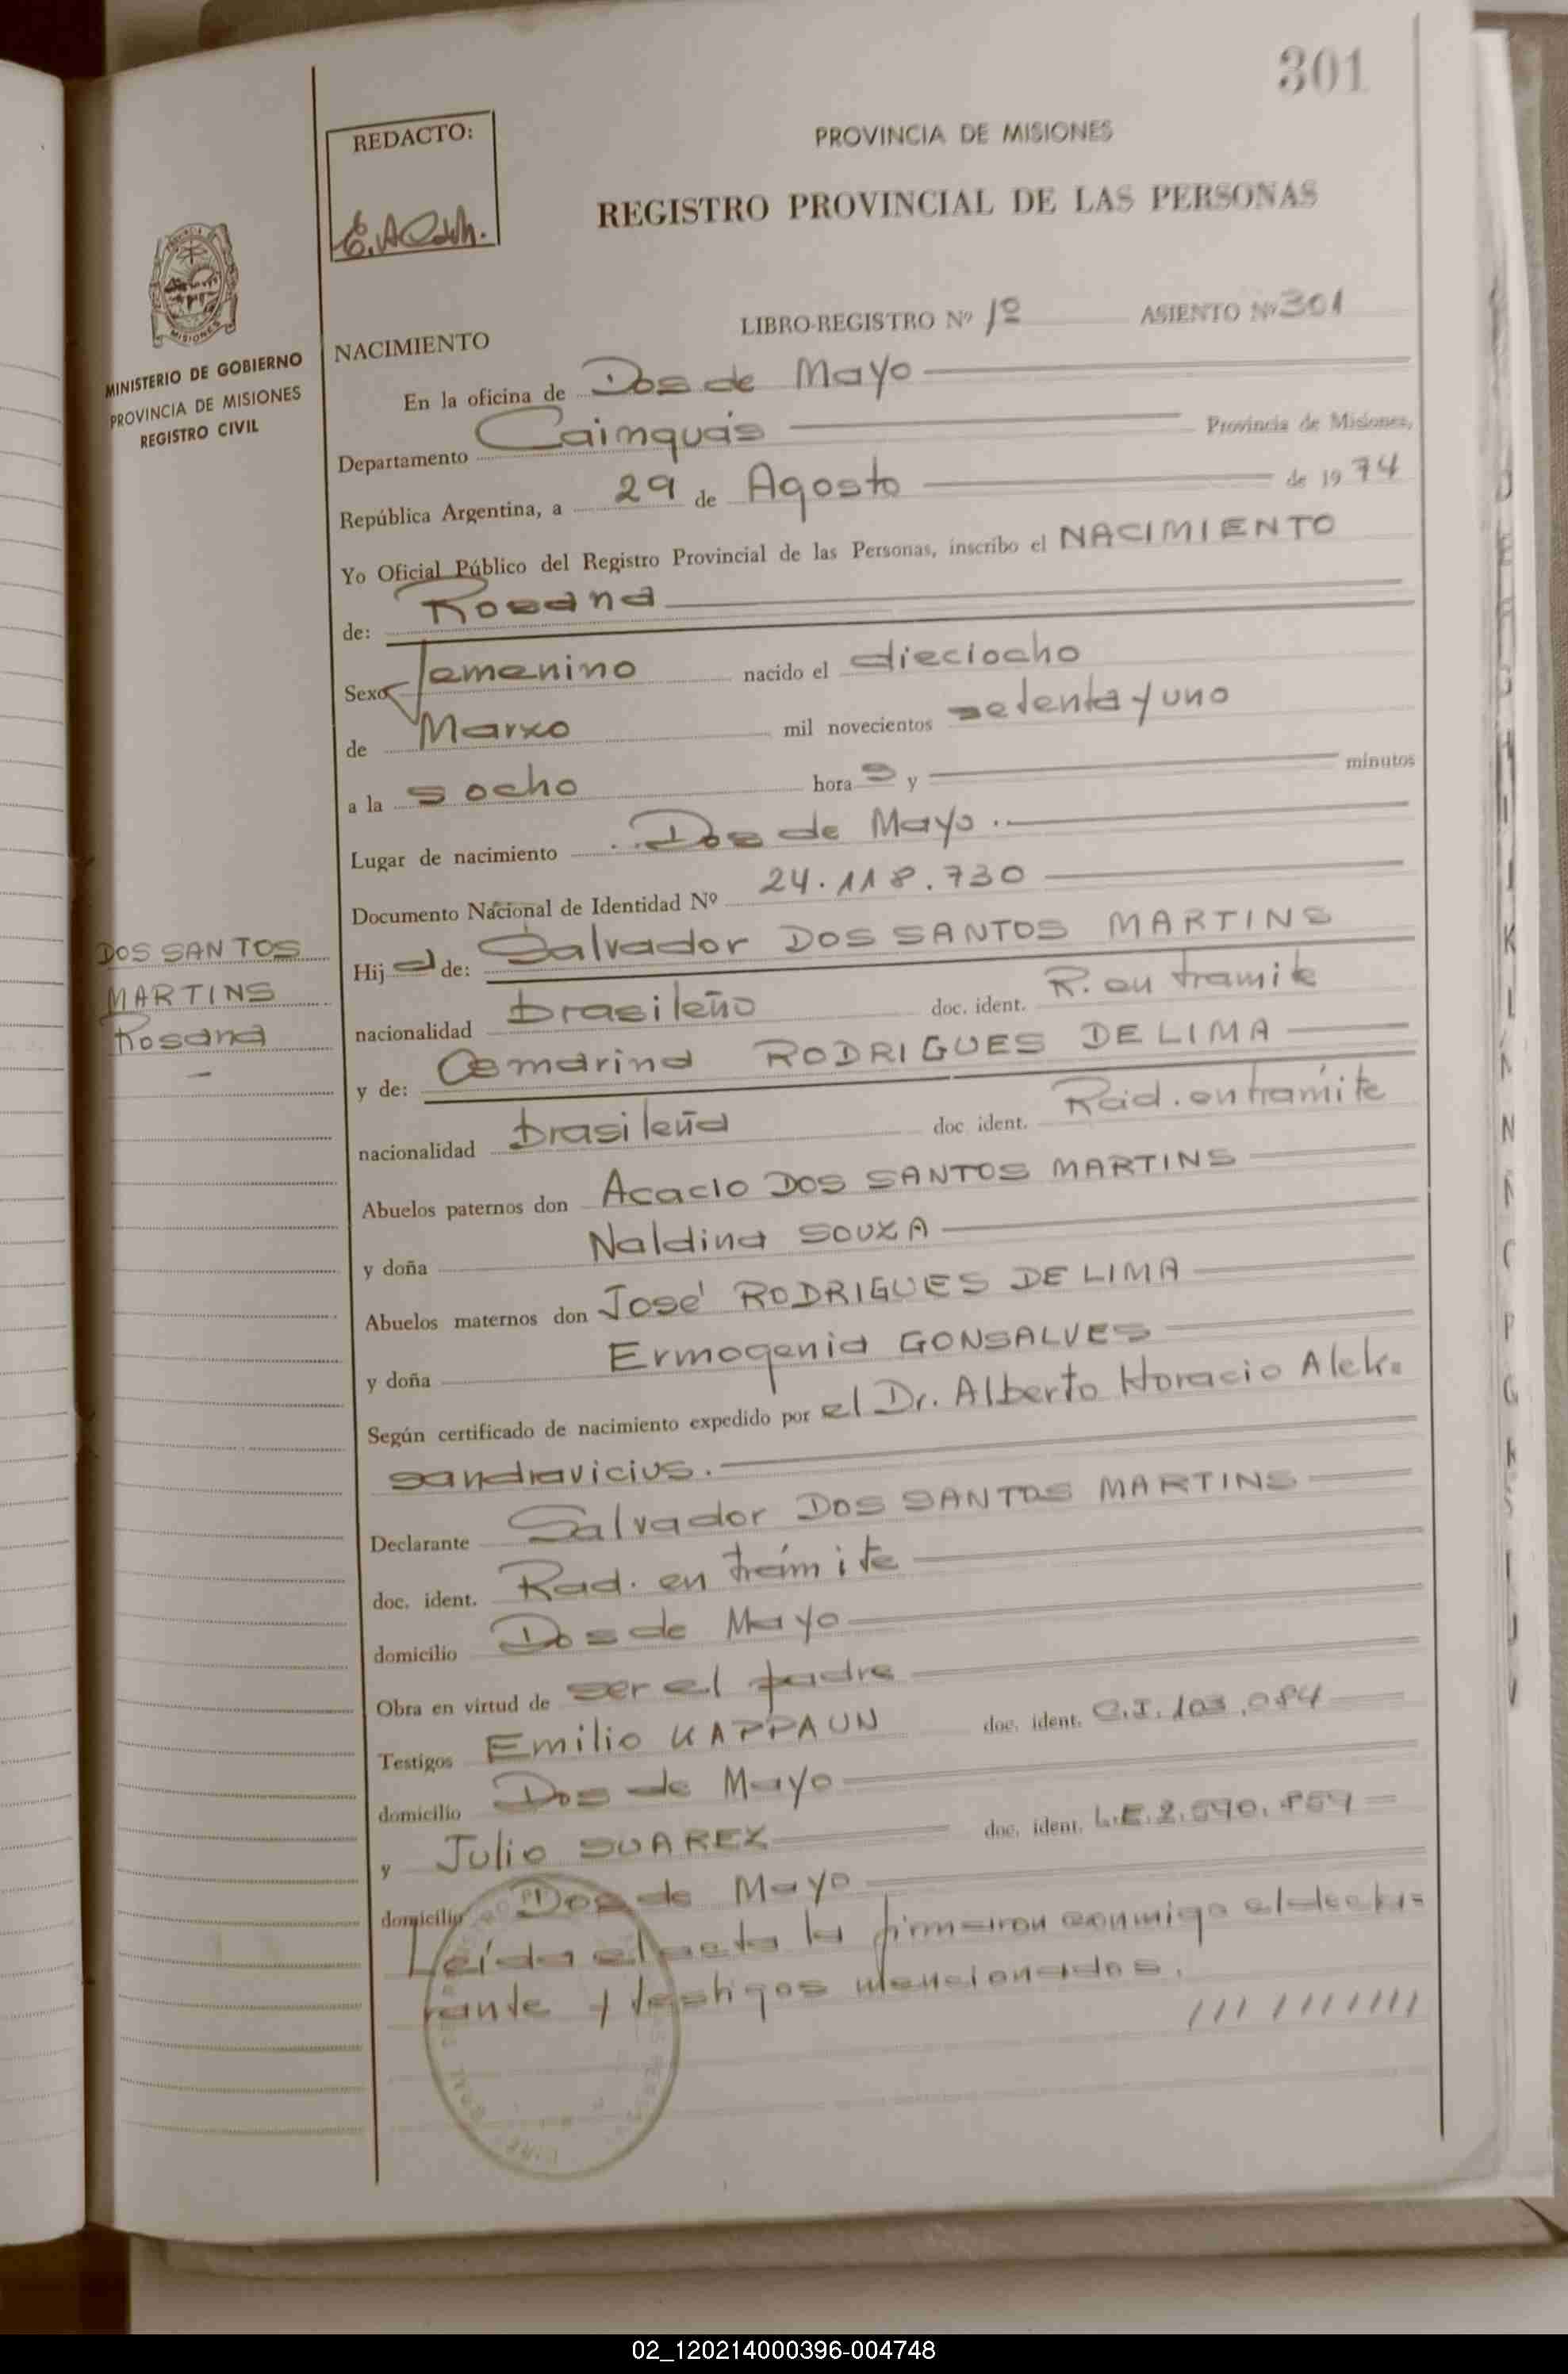 301
REDACTO:
PROVINCIA DE MISIONES
REGISTRO PROVINCIAL DE LAS PERSONAS
MISIONES
MINISTERIO DE GOBIERNO
PROVINCIA DE MISIONES
REGISTRO CIVIL
LIBRO-REGISTRO Nº 1º ASIENTO Nº 301
NACIMIENTO
En la oficina de Dos de Mayo
Departamento Cainguás Provincia de Misiones,
República Argentina, a 29 de Agosto de 1974
Yo Oficial Público del Registro Provincial de las Personas, inscribo el NACIMIENTO
de: Rosana
Sexo femenino nacido el dieciocho
de Marzo mil novecientos setenta y uno
a la s ocho hora s y minutos
Lugar de nacimiento Dos de Mayo.
Documento Nacional de Identidad Nº 24.118.730
DOS SANTOS
MARTINS
Rosana
Hij a de: Salvador DOS SANTOS MARTINS
nacionalidad brasileño doc. ident. R. en tramite
y de: Cemarina RODRIGUES DE LIMA
nacionalidad brasileña doc. ident. Rad. en trámite
Abuelos paternos don Acacio DOS SANTOS MARTINS
y doña Naldina SOUZA
Abuelos maternos don José RODRIGUES DE LIMA
y doña Ermogenia GONSALVES
Según certificado de nacimiento expedido por el Dr. Alberto Horacio Alek-
sandravicius.
Declarante Salvador DOS SANTOS MARTINS
doc. ident. Rad. en trámite
domicilio Dos de Mayo
Obra en virtud de ser el padre
Testigos Emilio KAPPAUN doc. ident. C.I. 103.084
domicilio Dos de Mayo
y Julio SUAREZ doc. ident. L.E. 2.590.859
domicilio Dos de Mayo
Leída el acta la firmaron conmigo el decla-
rante y testigos mencionados.
02_120214000396-004748